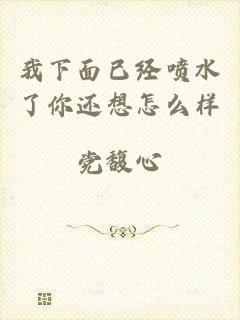 我下面已经喷水
了你还想怎么样
党馥心